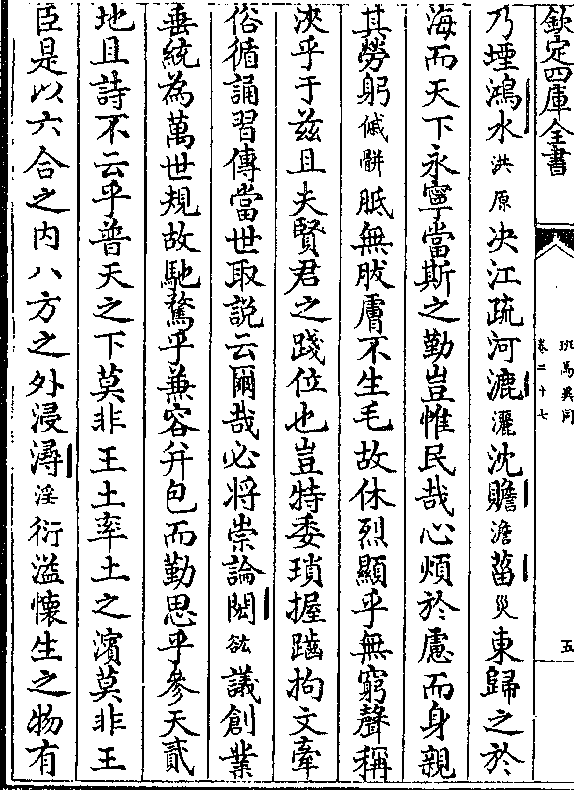 欽定四庫全書
班馬異同
卷二十七
五
乃堙鴻水洪原决江疏河漉灑沈贍澹菑災東歸之於
海而天下永寧當斯之勤豈惟民哉心煩於慮而身親
其勞躬傶骿胝無胈膚不生毛故休烈顯乎無窮聲稱
浹乎于兹且夫賢君之踐位也豈特委瑣握躪拘文牽
俗循誦習傳當世取説云爾哉必將崇論閎谹議創業
垂統為萬世規故馳騖乎兼容并包而勤思乎參天貳
地且詩不云乎普天之下莫非王土率土之濱莫非王
臣是以六合之内八方之外浸潯淫衍溢懷生之物有